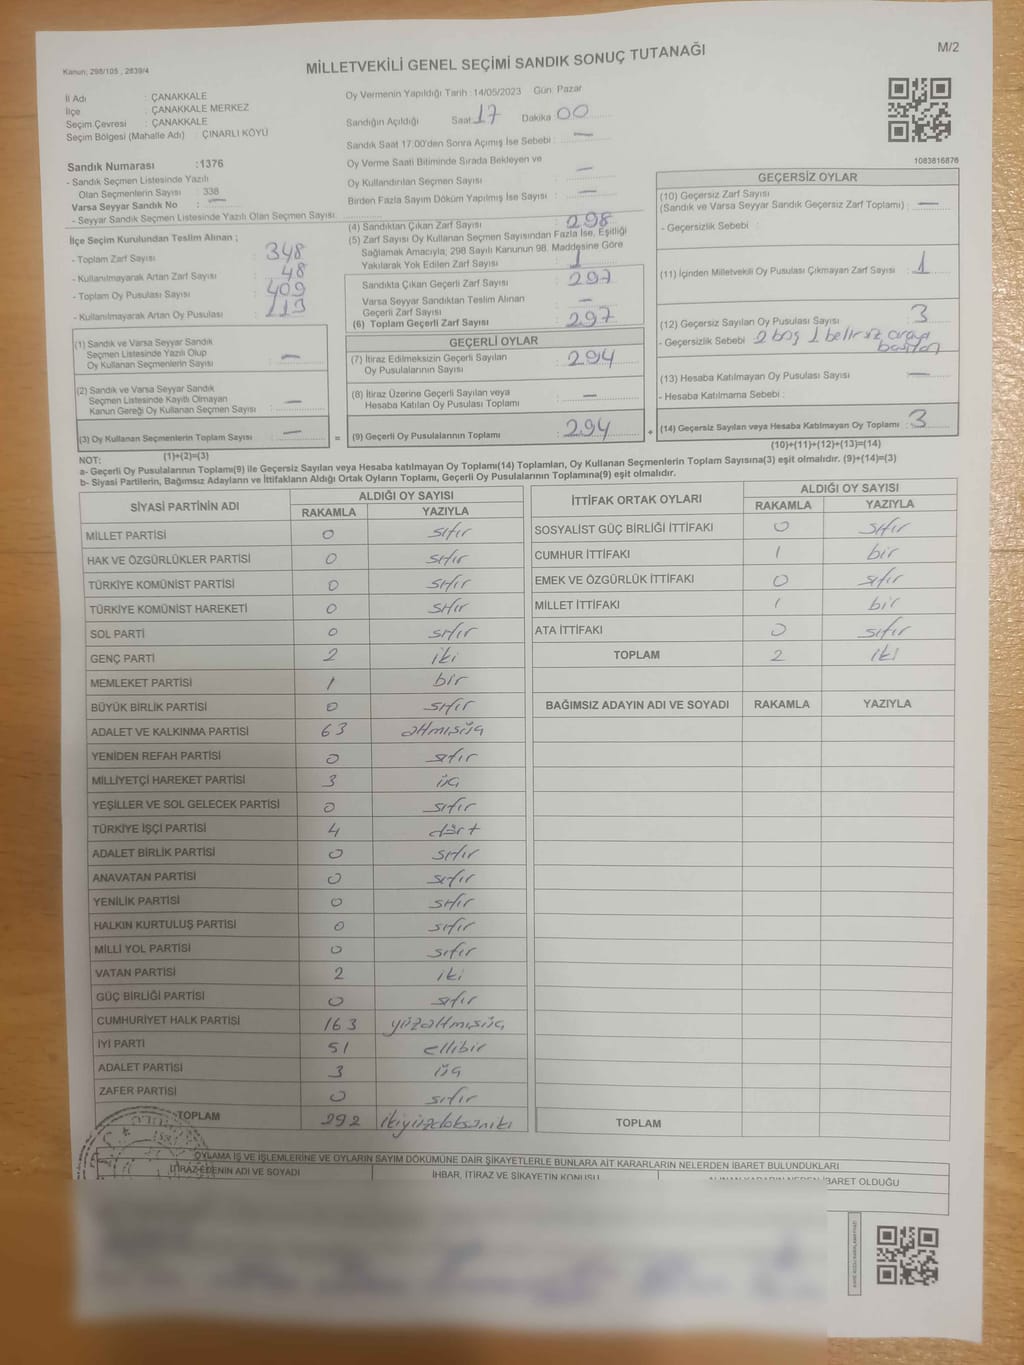 Kanun: 298/105 , 2839/4
MİLLETVEKİLİ GENEL SEÇİMİ SANDIK SONUÇ TUTANAĞI
M/2
İl Adı : ÇANAKKALE
İlçe : ÇANAKKALE MERKEZ
Seçim Çevresi : ÇANAKKALE
Seçim Bölgesi (Mahalle Adı) : ÇINARLI KÖYÜ
Oy Vermenin Yapıldığı Tarih :14/05/2023 Gün: Pazar
Sandığın Açıldığı Saat 17 Dakika 00
Sandık Saat 17.00'den Sonra Açımış İse Sebebi : —
Oy Verme Saati Bitiminde Sırada Bekleyen ve
Oy Kullandırılan Seçmen Sayısı : —
Birden Fazla Sayım Döküm Yapılmış İse Sayısı : —
1083816876
Sandık Numarası :1376
- Sandık Seçmen Listesinde Yazılı
Olan Seçmenlerin Sayısı : 338
Varsa Seyyar Sandık No : —
- Seyyar Sandık Seçmen Listesinde Yazılı Olan Seçmen Sayısı:
İlçe Seçim Kurulundan Teslim Alınan ;
- Toplam Zarf Sayısı : 348
- Kullanılmayarak Artan Zarf Sayısı : 48
- Toplam Oy Pusulası Sayısı : 409
- Kullanılmayarak Artan Oy Pusulası : 113
(1) Sandık ve Varsa Seyyar Sandık
Seçmen Listesinde Yazılı Olup
Oy Kullanan Seçmenlerin Sayısı : —
(2) Sandık ve Varsa Seyyar Sandık
Seçmen Listesinde Kayıtlı Olmayan
Kanun Gereği Oy Kullanan Seçmen Sayısı : —
(3) Oy Kullanan Seçmenlerin Toplam Sayısı : —
(1)+(2)=(3)
(4) Sandıktan Çıkan Zarf Sayısı : 298
(5) Zarf Sayısı Oy Kullanan Seçmen Sayısından Fazla İse, Eşitliği
Sağlamak Amacıyla; 298 Sayılı Kanunun 98. Maddesine Göre
Yakılarak Yok Edilen Zarf Sayısı : 1
Sandıkta Çıkan Geçerli Zarf Sayısı : 297
Varsa Seyyar Sandıktan Teslim Alınan
Geçerli Zarf Sayısı : —
(6) Toplam Geçerli Zarf Sayısı : 297
GEÇERLİ OYLAR
(7) İtiraz Edilmeksizin Geçerli Sayılan
Oy Pusulalarının Sayısı : 294
(8) İtiraz Üzerine Geçerli Sayılan veya
Hesaba Katılan Oy Pusulası Toplamı : —
= (9) Geçerli Oy Pusulalarının Toplamı : 294 +
GEÇERSİZ OYLAR
(10) Geçersiz Zarf Sayısı
(Sandık ve Varsa Seyyar Sandık Geçersiz Zarf Toplamı) : —
- Geçersizlik Sebebi :
(11) İçinden Milletvekili Oy Pusulası Çıkmayan Zarf Sayısı : 1
(12) Geçersiz Sayılan Oy Pusulası Sayısı : 3
- Geçersizlik Sebebi 2 boş 1 belirsiz araya
basılan
(13) Hesaba Katılmayan Oy Pusulası Sayısı : —
- Hesaba Katılmama Sebebi :
(14) Geçersiz Sayılan veya Hesaba Katılmayan Oy Toplamı : 3
(10)+(11)+(12)+(13)=(14)
NOT:
a- Geçerli Oy Pusulalarının Toplamı(9) ile Geçersiz Sayılan veya Hesaba katılmayan Oy Toplamı(14) Toplamları, Oy Kullanan Seçmenlerin Toplam Sayısına(3) eşit olmalıdır. (9)+(14)=(3)
b- Siyasi Partilerin, Bağımsız Adayların ve İttifakların Aldığı Ortak Oyların Toplamı, Geçerli Oy Pusulalarının Toplamına(9) eşit olmalıdır.
SİYASİ PARTİNİN ADI ALDIĞI OY SAYISI
RAKAMLA YAZIYLA
MİLLET PARTİSİ 0 sıfır
HAK VE ÖZGÜRLÜKLER PARTİSİ 0 sıfır
TÜRKİYE KOMÜNİST PARTİSİ 0 sıfır
TÜRKİYE KOMÜNİST HAREKETİ 0 sıfır
SOL PARTİ 0 sıfır
GENÇ PARTİ 2 iki
MEMLEKET PARTİSİ 1 bir
BÜYÜK BİRLİK PARTİSİ 0 sıfır
ADALET VE KALKINMA PARTİSİ 63 altmışüç
YENİDEN REFAH PARTİSİ 0 sıfır
MİLLİYETÇİ HAREKET PARTİSİ 3 üç
YEŞİLLER VE SOL GELECEK PARTİSİ 0 sıfır
TÜRKİYE İŞÇİ PARTİSİ 4 dört
ADALET BİRLİK PARTİSİ 0 sıfır
ANAVATAN PARTİSİ 0 sıfır
YENİLİK PARTİSİ 0 sıfır
HALKIN KURTULUŞ PARTİSİ 0 sıfır
MİLLİ YOL PARTİSİ 0 sıfır
VATAN PARTİSİ 2 iki
GÜÇ BİRLİĞİ PARTİSİ 0 sıfır
CUMHURİYET HALK PARTİSİ 163 yüzaltmışüç
İYİ PARTİ 51 ellibir
ADALET PARTİSİ 3 üç
ZAFER PARTİSİ 0 sıfır
TOPLAM 292 ikiyüzdoksaniki
İTTİFAK ORTAK OYLARI ALDIĞI OY SAYISI
RAKAMLA YAZIYLA
SOSYALİST GÜÇ BİRLİĞİ İTTİFAKI 0 sıfır
CUMHUR İTTİFAKI 1 bir
EMEK VE ÖZGÜRLÜK İTTİFAKI 0 sıfır
MİLLET İTTİFAKI 1 bir
ATA İTTİFAKI 0 sıfır
TOPLAM 2 iki
BAĞIMSIZ ADAYIN ADI VE SOYADI RAKAMLA YAZIYLA
TOPLAM
OYLAMA İŞ VE İŞLEMLERİNE VE OYLARIN SAYIM DÖKÜMÜNE DAİR ŞİKAYETLERLE BUNLARA AİT KARARLARIN NELERDEN İBARET BULUNDUKLARI
İTİRAZ EDENİN ADI VE SOYADI İHBAR, İTİRAZ VE ŞİKAYETİN KONUSU İBARET OLDUĞU